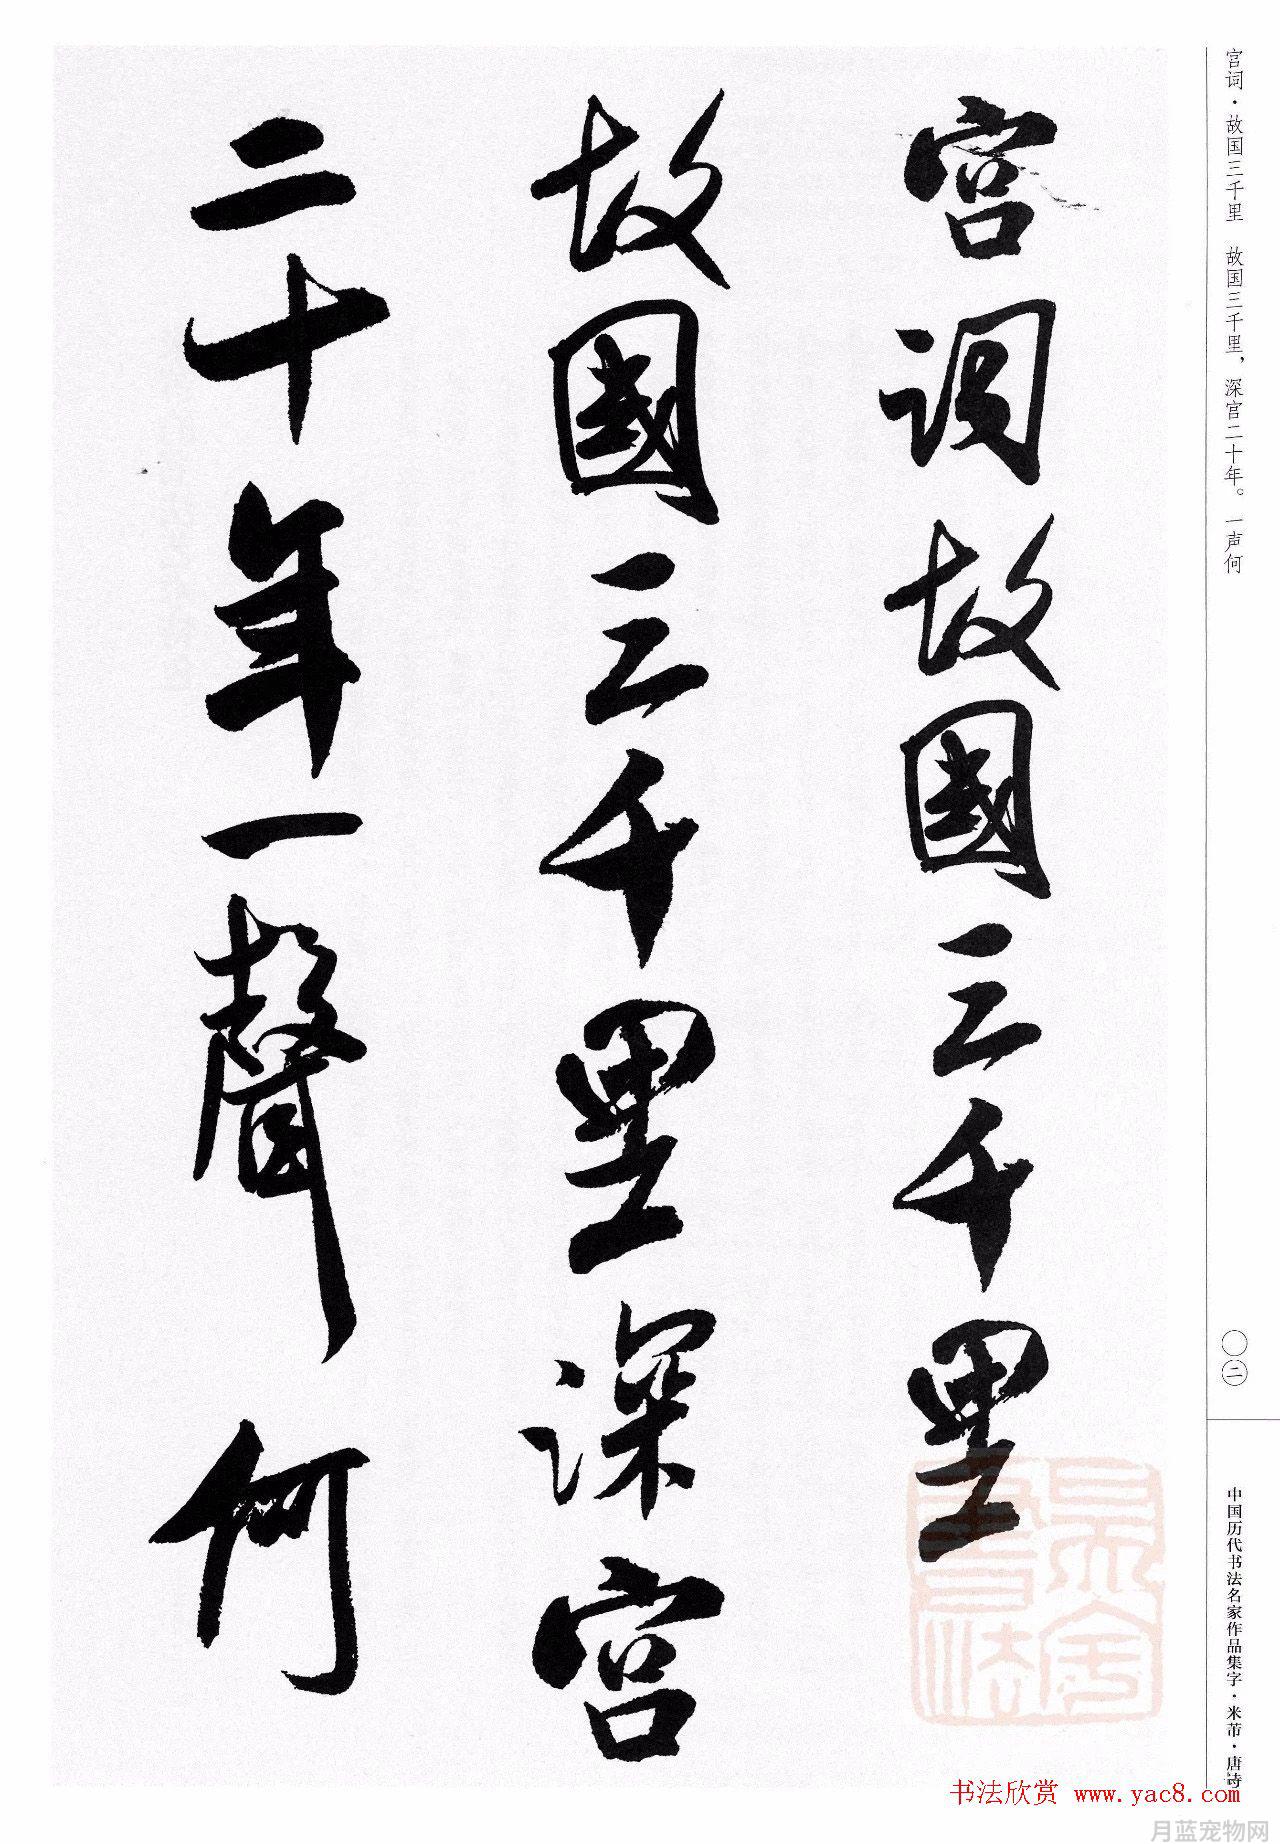 宫词·故国三千里 故国三千里，深宫二十年。一声何
宫词故國三千里
故國三千里深宫
二十年一聲何
〇二
中国历代书法名家作品集字·米芾·唐诗
书法欣赏 www.yac8.com
月蓝宠物网